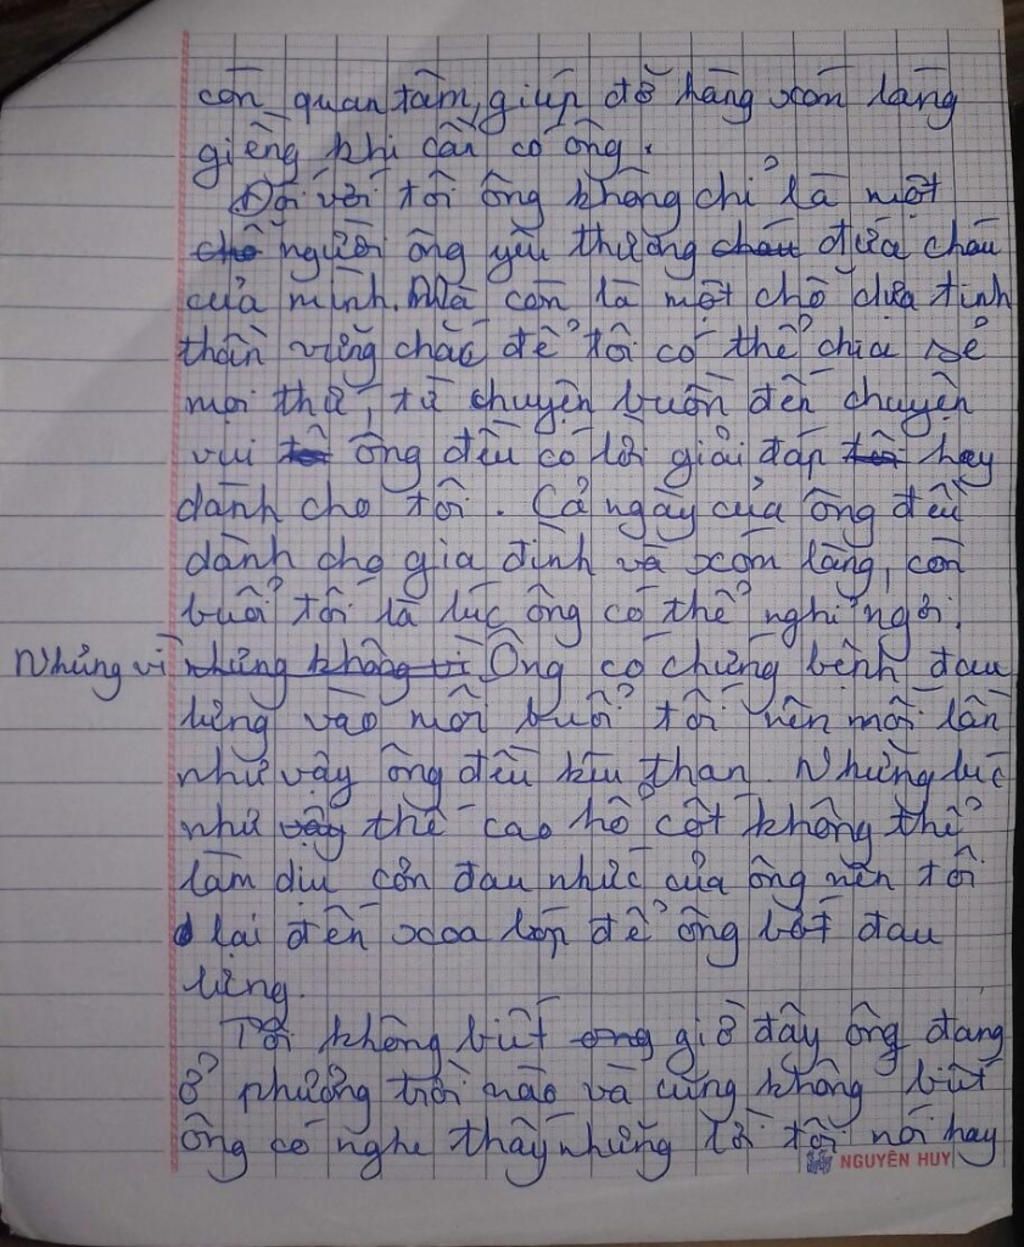 còn quan tâm, giúp đỡ hàng xóm láng
giềng khi cần có ông.
Đối với tôi ông không chỉ là một
chỗ người ông yêu thương cháu đứa cháu
của mình. Mà còn là một chỗ dựa tinh
thần vững chắc để tôi có thể chia sẻ
mọi thứ, từ chuyện buồn đến chuyện
vui tôi ông đều có lời giải đáp tôi hay
dành cho tôi. Cả ngày của ông đều
dành cho gia đình và xóm làng, còn
buổi tối là lúc ông có thể nghỉ ngơi.
Nhưng vì những không vì Ông có chứng bệnh đau
lưng vào mỗi buổi tối nên mỗi lần
như vậy ông đều kêu than. Những lúc
như vậy thế cao hổ cốt không thể
làm dịu cơn đau nhức của ông nên tôi
lại đến xoa bóp để ông bớt đau
lưng.
Tôi không biết ong giờ đây ông đang
ở phương trời nào và cũng không biết
ông có nghe thấy những lời tôi nói hay
NGUYÊN HUY